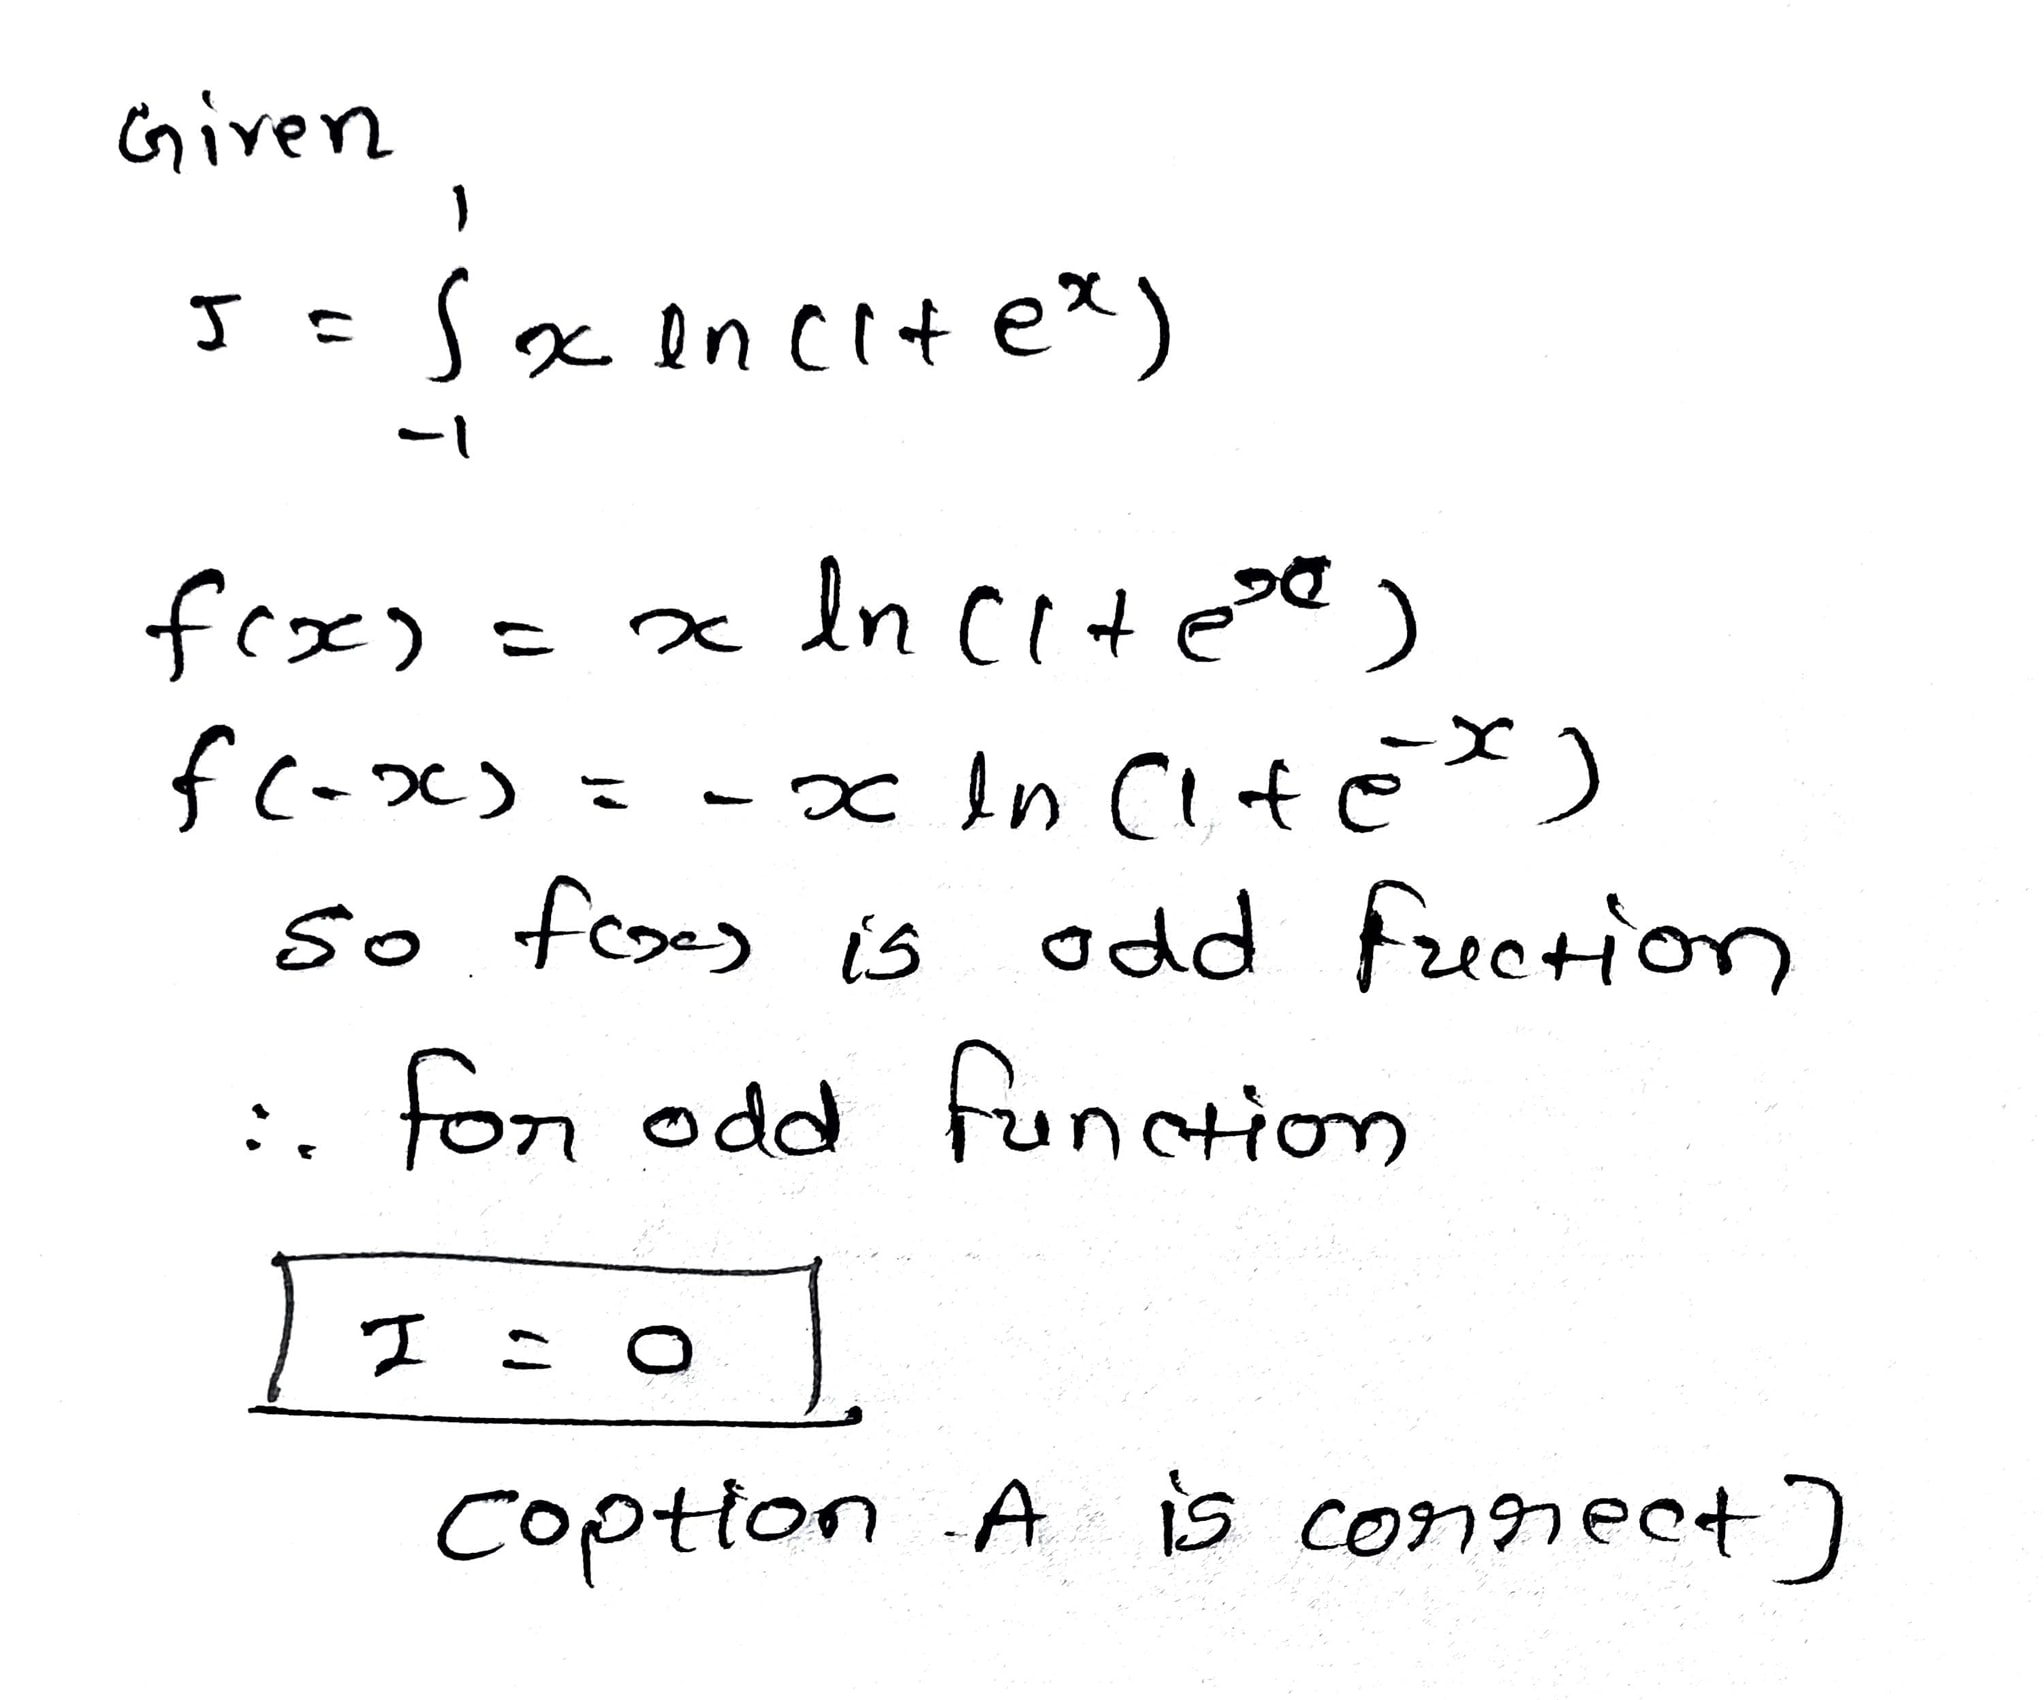 Given
I = ∫₋₁¹ x ln(1+eˣ)
f(x) = x ln(1+eˣ)
f(-x) = -x ln(1+e⁻ˣ)
so f(x) is odd fuction
∴ for odd function
I = 0
(option A is correct)